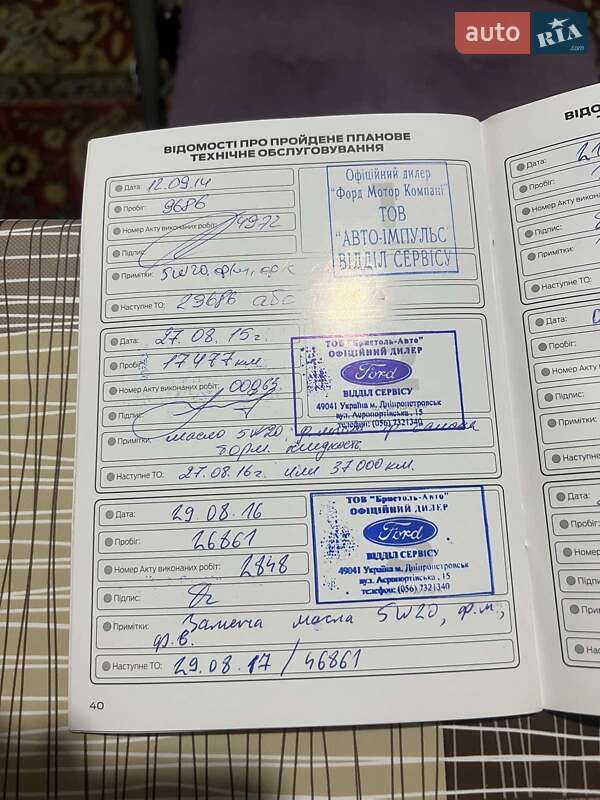 auto RIA.com
ВІДОМОСТІ ПРО ПРОЙДЕНЕ ПЛАНОВЕ
ТЕХНІЧНЕ ОБСЛУГОВУВАННЯ
Дата: 12.09.14
Пробіг: 9686
Номер Акту виконаних робіт: 4972
Підпис:
Примітки: 5W20, ф/м,
Наступне ТО: 29686 або
Офіційний дилер
"Форд Мотор Компані"
ТОВ
"АВТО-ІМПУЛЬС"
ВІДДІЛ СЕРВІСУ
Дата: 27.08.15г.
Пробіг: 17477 км.
Номер Акту виконаних робіт:
Підпис:
Примітки: масло 5W20, ф. салона
торм. жидкость
Наступне ТО: 27.08.16г или 37000 км.
ТОВ "Бристоль-Авто"
ОФІЦІЙНИЙ ДИЛЕР
Ford
ВІДДІЛ СЕРВІСУ
49041 Україна м. Дніпропетровськ
вул. Аеропортівська, 15
телефон: (056) 7321340
Дата: 29.08.16
Пробіг: 26861
Номер Акту виконаних робіт: 2848
Підпис:
Примітки: Замена масла 5W20, ф.м.,
ф.в.
Наступне ТО: 29.08.17/46861
ТОВ "Бристоль-Авто"
ОФІЦІЙНИЙ ДИЛЕР
Ford
ВІДДІЛ СЕРВІСУ
49041 Україна м. Дніпропетровськ
вул. Аеропортівська, 15
телефон: (056) 7321340
40
Дата:
Пробіг:
Номер Акту виконани
Підпис:
Примітки:
Наступне ТО:
Дата:
Пробіг:
Номер Акту вико
Підпис:
Примітки:
Наступне ТО:
Дата:
Пробіг:
Номер Акту
Підпис:
Примітки